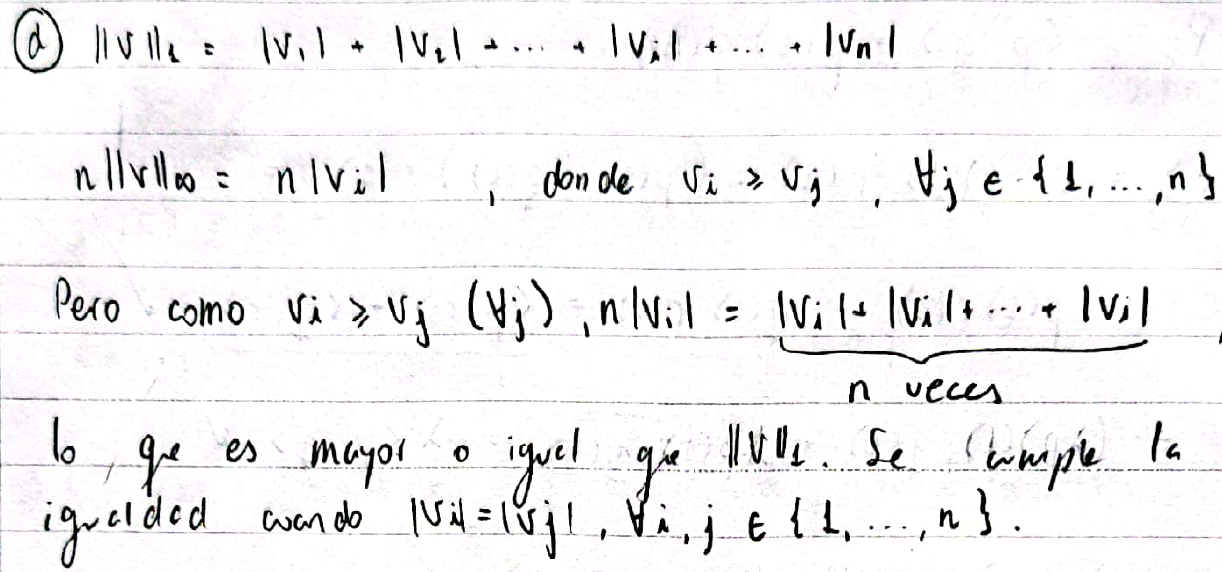 (d) ||v||₁ = |v₁| + |v₂| + ... + |vᵢ| + ... + |vₙ|
n||v||∞ = n|vᵢ| , donde vᵢ ≥ vⱼ , ∀j ∈ {1, ..., n}
Pero como vᵢ ≥ vⱼ (∀j), n|vᵢ| = |vᵢ| + |vᵢ| + ... + |vᵢ| ,
n veces
lo que es mayor o igual que ||v||₁. Se cumple la
igualdad cuando |vᵢ| = |vⱼ| , ∀i, j ∈ {1, ..., n}.